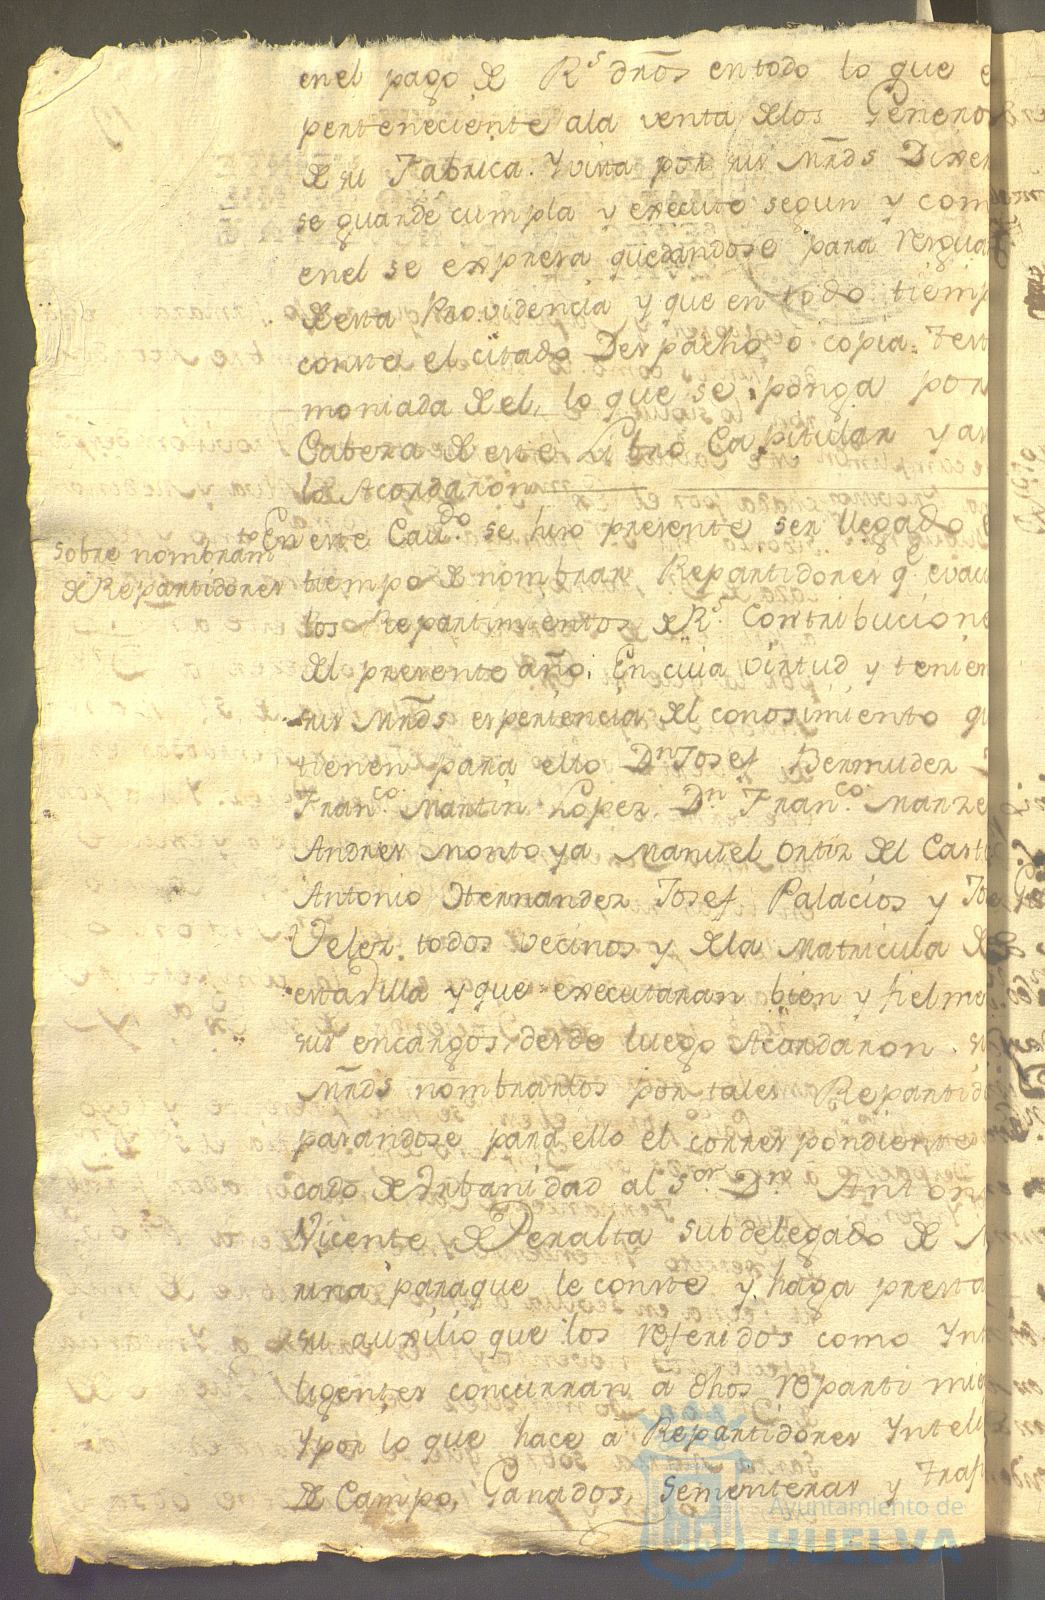 en el pago de R.s dros en todo lo que e
perteneciente ala venta delos Generos
de su Fabrica. Y vista por sus Mrds Dixer
se guarde cumpla y execute segun y com
enel se expresa quedandose para resgua
desta Providencia y que en todo tiemp
conste el citado Despacho o copia testi
moniada de el, lo que se ponga por
Cabeza de este Libro Capitular y asi
lo Acordaron
Sobre nombram.to
de Repartidores
En este Cav.do se hizo presente ser llegado e
tiempo de nombrar Repartidores q.e evacu
los Repartimientos de R.s Contribucione
del presente año; En cuia virtud y tenien
sus Mrds esperiencia del conosimiento qu
tienen para ello D.n Josef Bermudez
Fran.co Martin Lopez, D.n Fran.co Manze
Andres Montoya Manuel Ortiz del Casti
Antonio Hernandez Josef Palacios y Jose
Velez todos vecinos y dela Matricula de
esta Villa y que executaran bien y fielme
sus encargos, desde luego Acordaron su
Mrds nombrarlos por tales Repartido
pasandose para ello el correspondiente
cado de Urbanidad al S.or D.n Anton
Vicente de Peralta subdelegado de M
rina paraque le conste y haga presta
su auxilio que los referidos como Ynt
ligentes concurran a dhos repartimie
Y por lo que hace a Repartidores Yntel
de Campo, Ganados, Sementeras y Traf
Ayuntamiento de
HUELVA